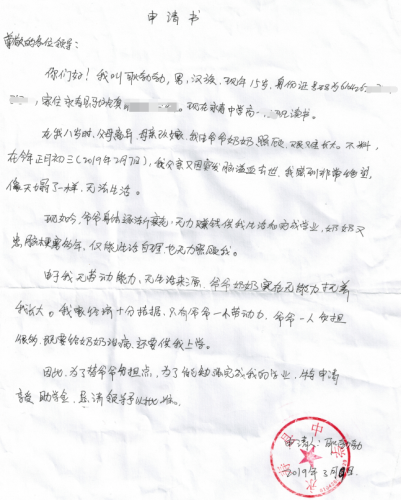 申请书
尊敬的各位领导：
你们好！我叫耿勃勃，男，汉族，现年15岁，身份证号码为
，家住永寿县。现在永寿中学高一 班读书。
在我八岁时，父母离异，母亲改嫁，我由爷爷奶奶照顾，艰难长大。不料，
在今年正月初三（2019年2月7日），我父亲又因突发脑溢血去世，我感到非常绝望，
像天塌了一样，无法生活。
现如今，爷爷身体逐渐衰老，无力赚钱供我生活和完成学业，奶奶又
患脑梗塞多年，仅能生活自理也无力照顾我。
由于我无劳动能力，无生活来源，爷爷奶奶实在无能力抚养
我长大。我家经济十分拮据，只有爷爷一个劳动力，爷爷一人负担
很重，既要给奶奶治病，还要供我上学。
因此，为了替爷爷负担点，为了能够完成我的学业，特申请
助学金，恳请领导予以批准。
申请人：耿勃勃
2019年3月 日